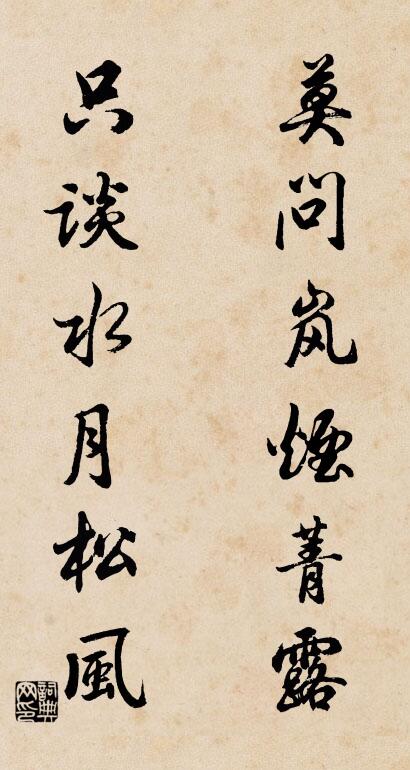 莫问岚烟菁露
只谈水月松風
詞典网印